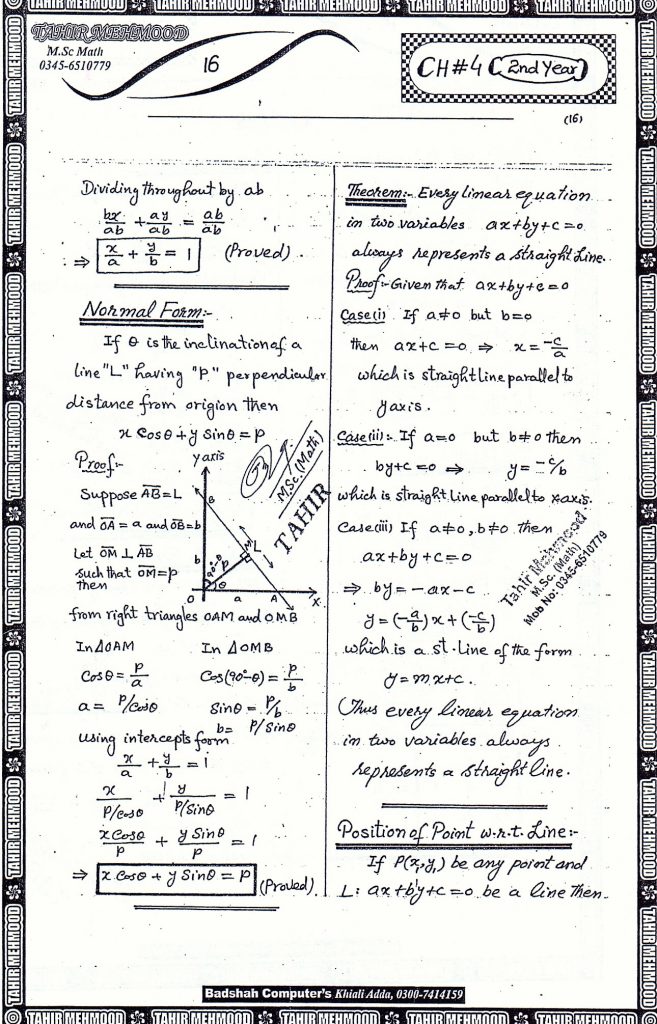 TAHIR MEHMOOD
M.Sc Math
0345-6510779
16
CH#4 (2nd Year)
(16)
Dividing throughout by ab
bx/ab + ay/ab = ab/ab
⇒ x/a + y/b = 1 (Proved).
Normal Form:-
If θ is the inclination of a
line "L" having "P" perpendicular
distance from origion then
x Cosθ + y Sinθ = P
Proof:-
Suppose AB = L
and OA = a and OB = b
Let OM ⊥ AB
such that OM = p
then
y axis
B
b
M
L
P
90°-θ
θ
O
a
A
x
M.Sc.(Math)
TAHIR
from right triangles OAM and OMB
In ΔOAM In ΔOMB
Cosθ = P/a Cos(90°-θ) = P/b
a = P/Cosθ Sinθ = P/b
b = P/Sinθ
using intercepts form
x/a + y/b = 1
x/(P/Cosθ) + y/(P/Sinθ) = 1
x Cosθ/P + y Sinθ/P = 1
⇒ x Cosθ + y Sinθ = P (Proved).
Theorem:- Every linear equation
in two variables ax+by+c=0
always represents a straight Line.
Proof:- Given that ax+by+c=0
Case(i) If a≠0 but b=0
then ax+c=0 ⇒ x = -c/a
which is straight line parallel to
y axis.
Case(ii):- If a=0 but b≠0 then
by+c=0 ⇒ y = -c/b
which is straight Line parallel to x-axis.
Case(iii) If a≠0, b≠0 then
ax+by+c=0
⇒ by = -ax-c
y = (-a/b)x + (-c/b)
which is a st. Line of the form
y = mx+c.
Thus every linear equation
in two variables always
represents a straight line.
Tahir Mehmood
M.Sc. (Math)
Mob No: 0345-6510779
Position of Point w.r.t. Line:-
If P(x₁,y₁) be any point and
L: ax+by+c=0 be a line then
Badshah Computer's Khiali Adda, 0300-7414159
TAHIR MEHMOOD TAHIR MEHMOOD TAHIR MEHMOOD TAHIR MEHMOOD TAHIR MEHMOOD